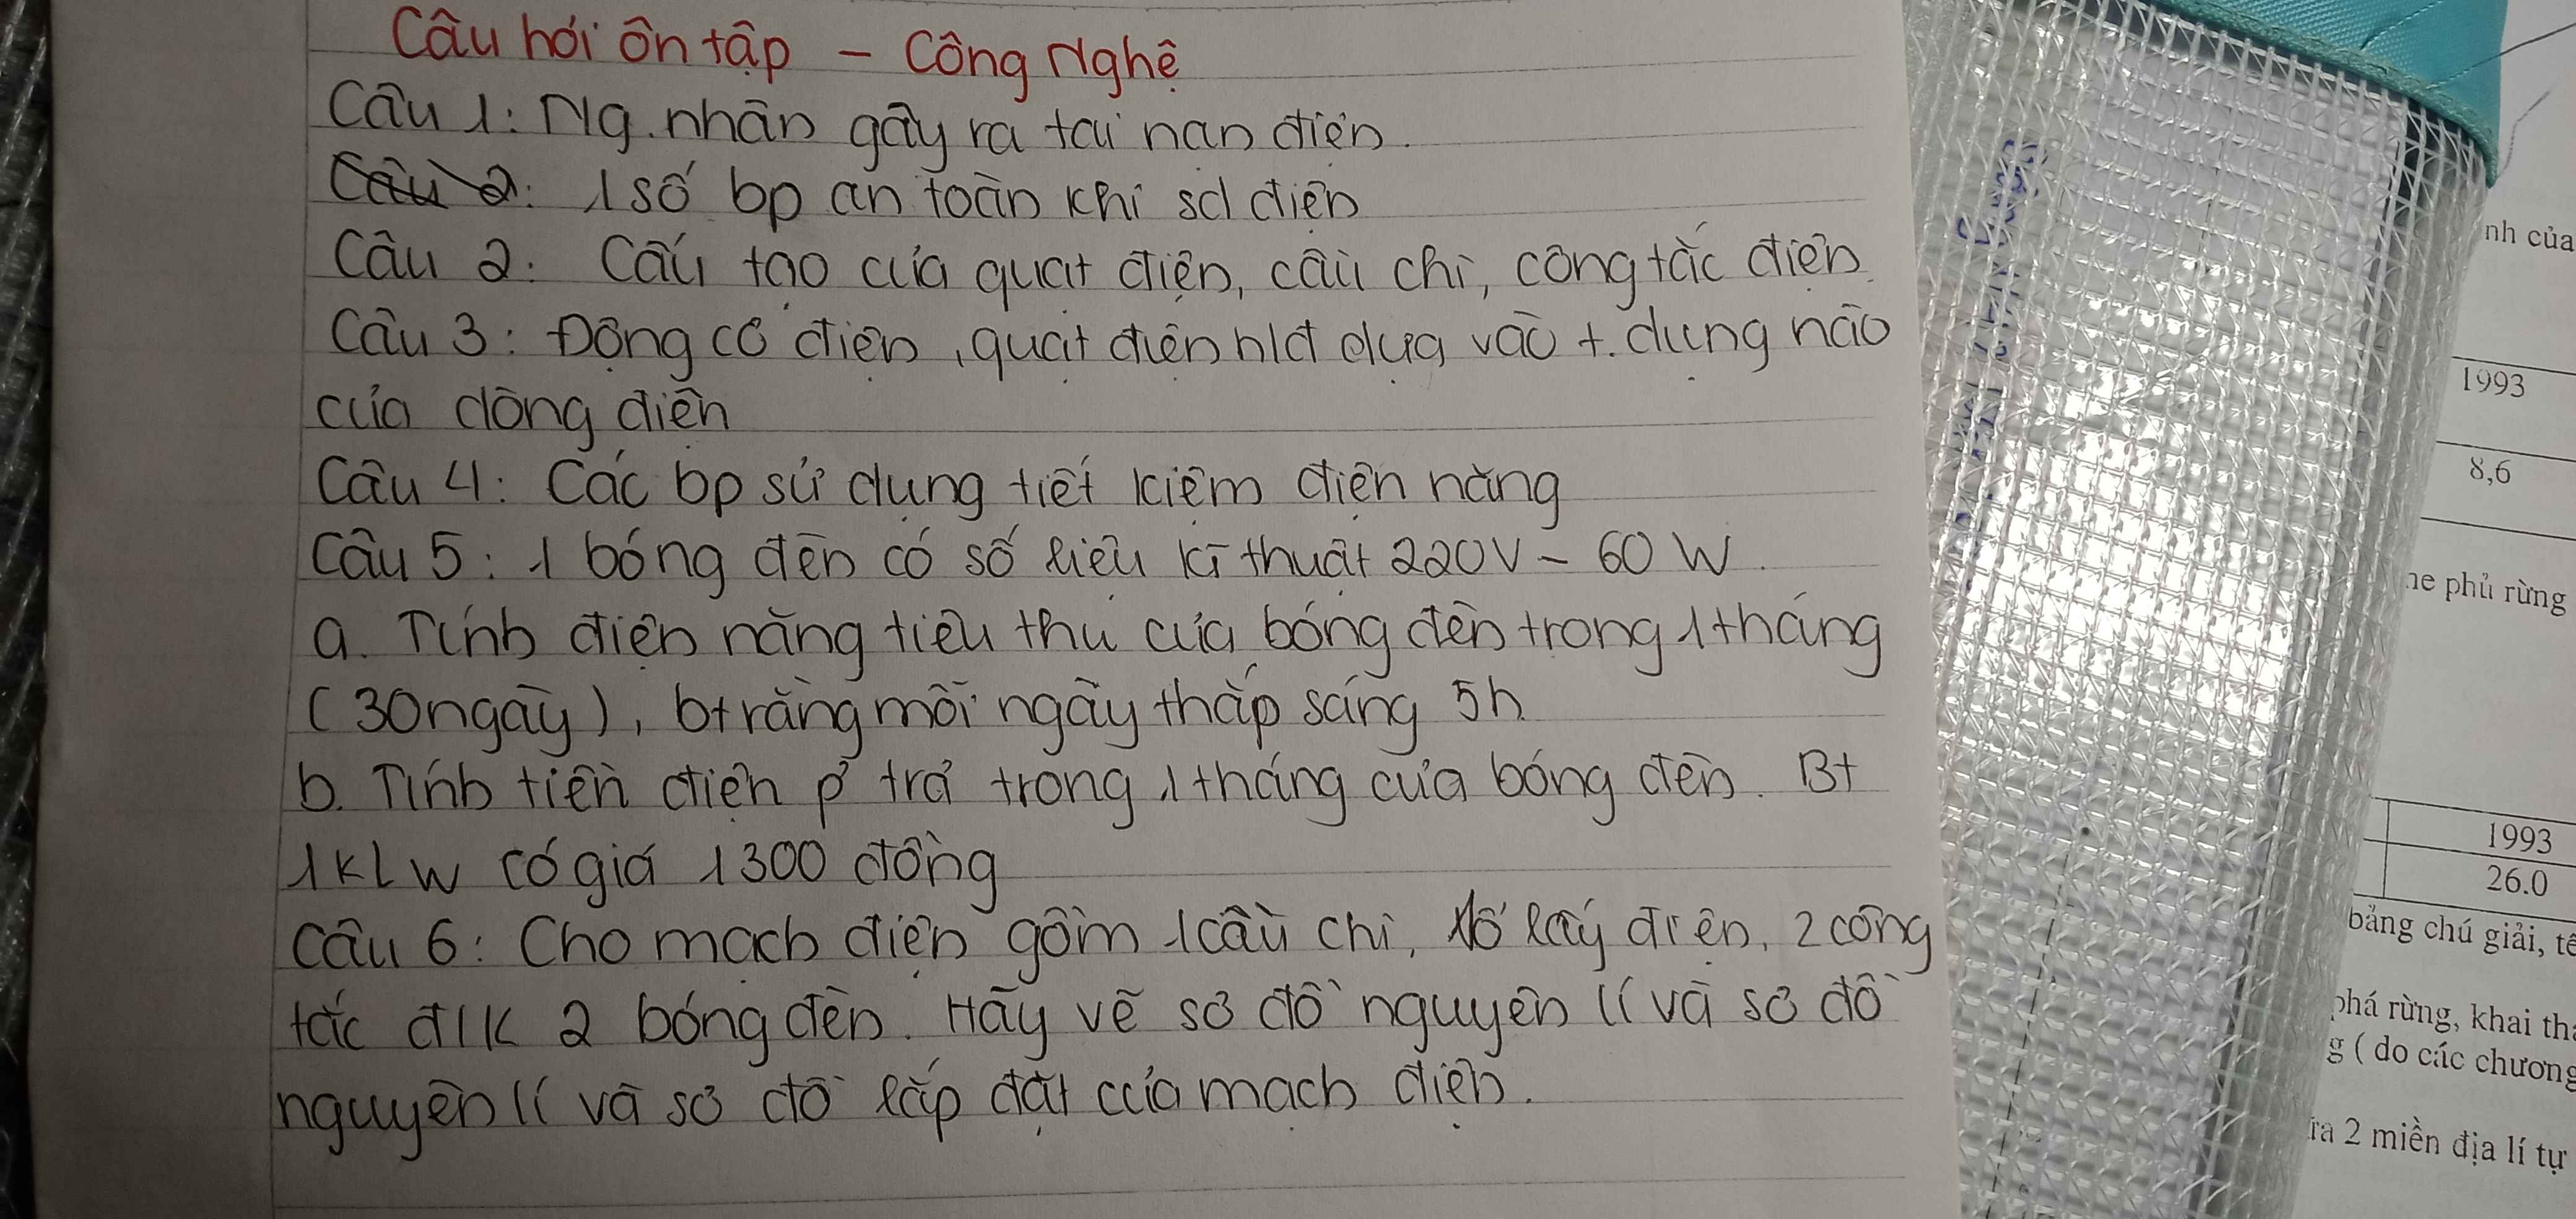 Câu hỏi ôn tập - Công Nghệ
Câu 1: Ng. nhân gây ra tai nạn điện.
Câu 2: 1 số bp an toàn khi sd điện
Câu 2: Cấu tạo của quạt điện, cầu chì, công tắc điện
Câu 3: Động cơ điện, quạt điện hđ dựa vào t. dụng nào
của dòng điện
Câu 4: Các bp sử dụng tiết kiệm điện năng
Câu 5: 1 bóng đèn có số liệu kĩ thuật 220V - 60 W.
a. Tính điện năng tiêu thụ của bóng đèn trong 1 tháng
(30 ngày), bt rằng mỗi ngày thắp sáng 5h.
b. Tính tiền điện p' trả trong 1 tháng của bóng đèn. Bt
1 kLw có giá 1300 đồng
Câu 6: Cho mạch điện gồm 1 cầu chì, 1 ổ lấy điện, 2 công
tắc đ/k 2 bóng đèn. Hãy vẽ sơ đồ nguyên lí và sơ đồ
nguyên lí và sơ đồ lắp đặt của mạch điện.
nh của
1993
8,6
he phủ rừng
1993
26.0
bảng chú giải, tê
phá rừng, khai thá
g ( do các chương
ữa 2 miền địa lí tự